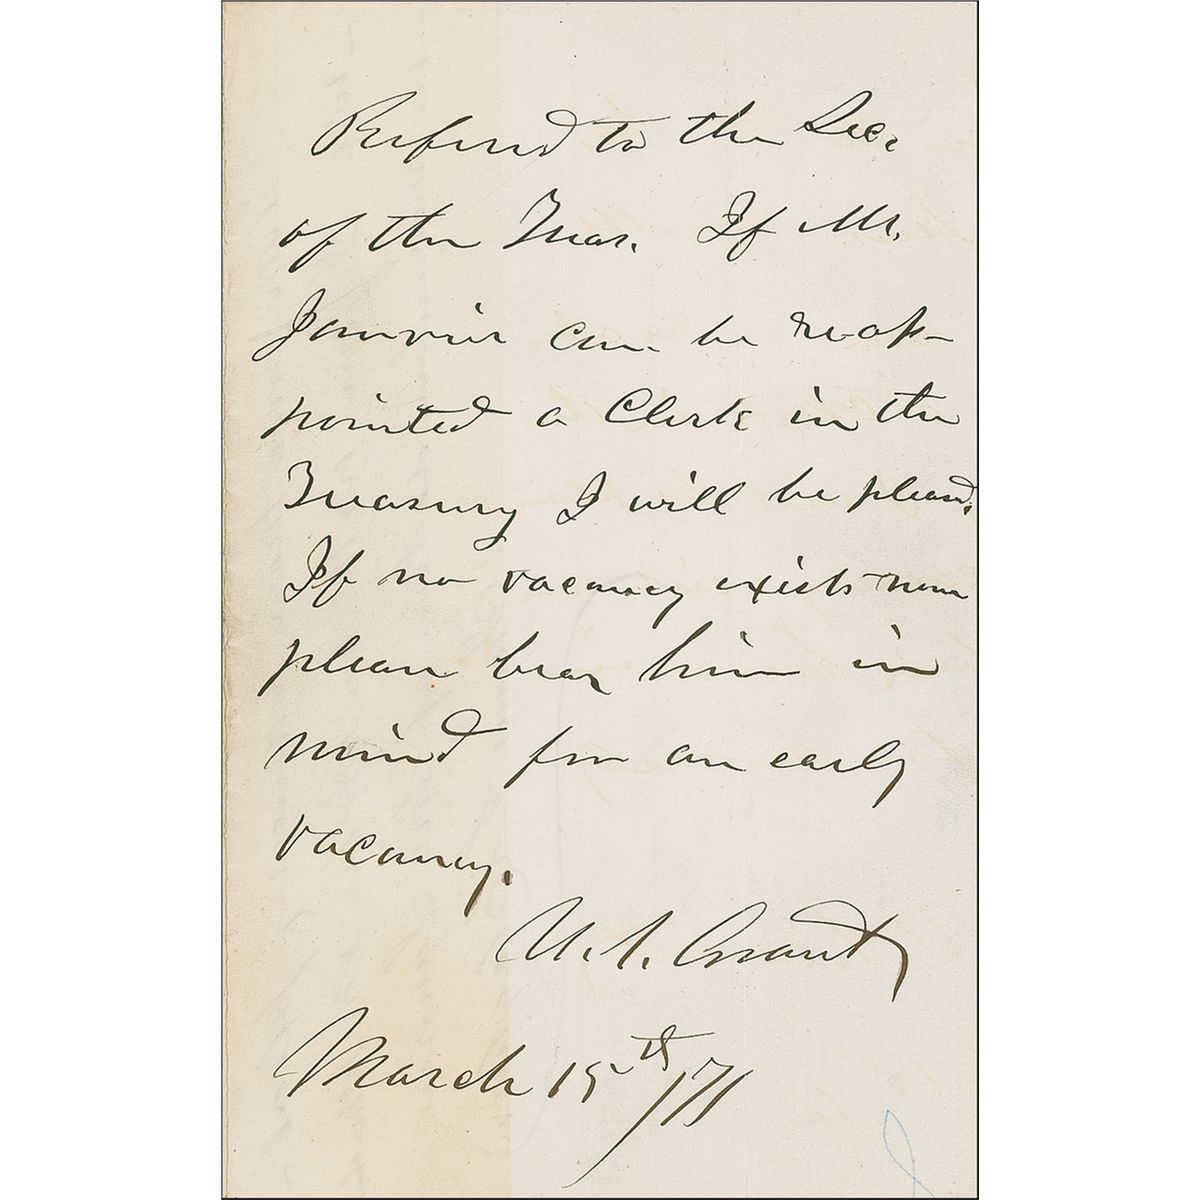 Referred to the Sec.
of the Treas. If Mr.
Janvier can be reap-
pointed a Clerk in the
Treasury I will be pleased.
If no vacancy exists now
please bear him in
mind for an early
vacancy.
U. S. Grant
March 15th /71